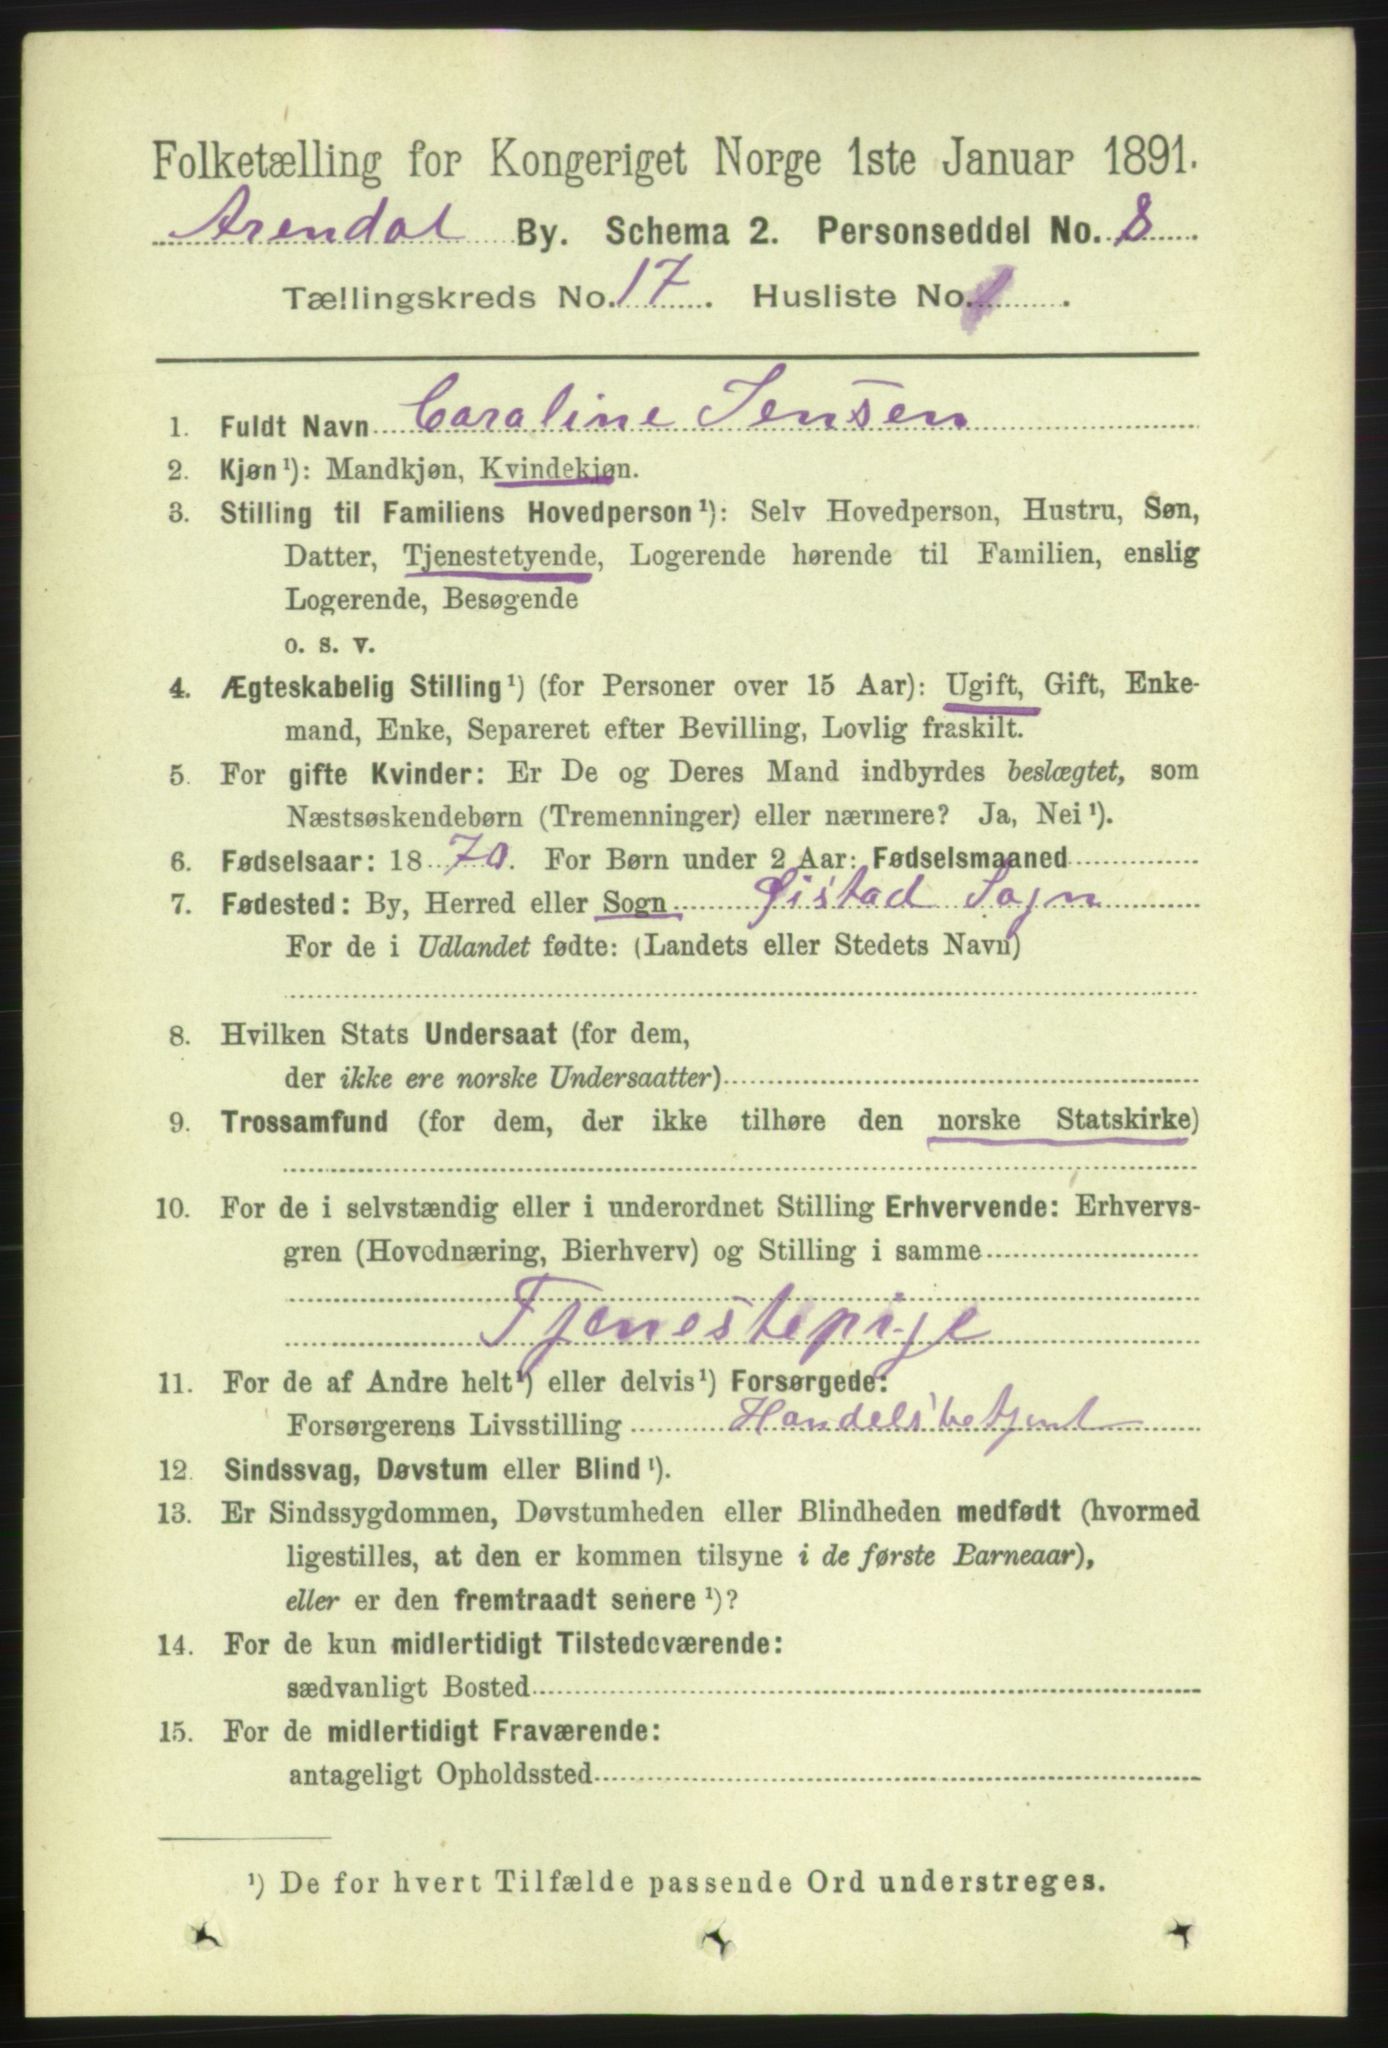 Folketælling for Kongeriget Norge 1ste Januar 1891.
Arendal By. Schema 2. Personseddel No. 8
Tællingskreds No. 17. Husliste No. 1.
1. Fuldt Navn Caroline Jensen
2. Kjøn ¹): Mandkjøn, Kvindekjøn.
3. Stilling til Familiens Hovedperson ¹): Selv Hovedperson, Hustru, Søn,
Datter, Tjenestetyende, Logerende hørende til Familien, enslig
Logerende, Besøgende
o. s. v.
4. Ægteskabelig Stilling ¹) (for Personer over 15 Aar): Ugift, Gift, Enke-
mand, Enke, Separeret efter Bevilling, Lovlig fraskilt.
5. For gifte Kvinder: Er De og Deres Mand indbyrdes beslægtet, som
Næstsøskendebørn (Tremenninger) eller nærmere? Ja, Nei ¹).
6. Fødselsaar: 1870. For Børn under 2 Aar: Fødselsmaaned
7. Fødested: By, Herred eller Sogn Øistad Sogn
For de i Udlandet fødte: (Landets eller Stedets Navn)
8. Hvilken Stats Undersaat (for dem,
der ikke ere norske Undersaatter)
9. Trossamfund (for dem, der ikke tilhøre den norske Statskirke)
10. For de i selvstændig eller i underordnet Stilling Erhvervende: Erhvervs-
gren (Hovednæring, Bierhverv) og Stilling i samme
Tjenestepige
11. For de af Andre helt ¹) eller delvis ¹) Forsørgede:
Forsørgerens Livsstilling Handelsbetjent
12. Sindssvag, Døvstum eller Blind ¹).
13. Er Sindssygdommen, Døvstumheden eller Blindheden medfødt (hvormed
ligestilles, at den er kommen tilsyne i de første Barneaar),
eller er den fremtraadt senere ¹)?
14. For de kun midlertidigt Tilstedeværende:
sædvanligt Bosted
15. For de midlertidigt Fraværende:
antageligt Opholdssted
¹) De for hvert Tilfælde passende Ord understreges.